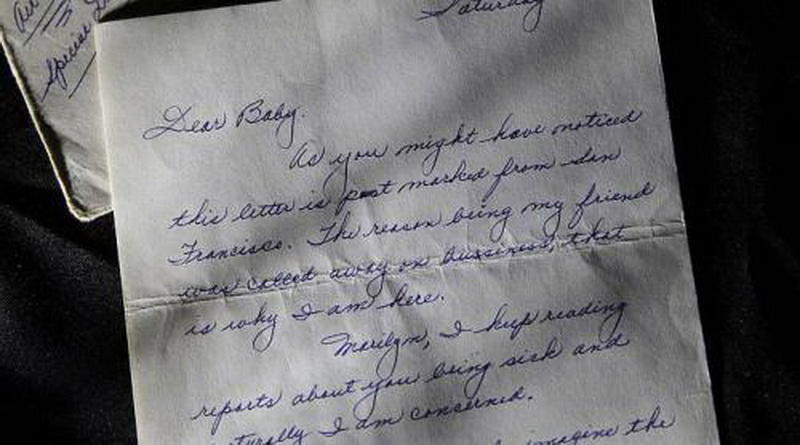 Air
Special
Saturday
Dear Baby.
As you might have noticed
this letter is post marked from San
Francisco. The reason being my friend
was called away on bussiness, that
is why I am here.
Marilyn, I keep reading
reports about you being sick and
naturally I am concerned.
imagine the